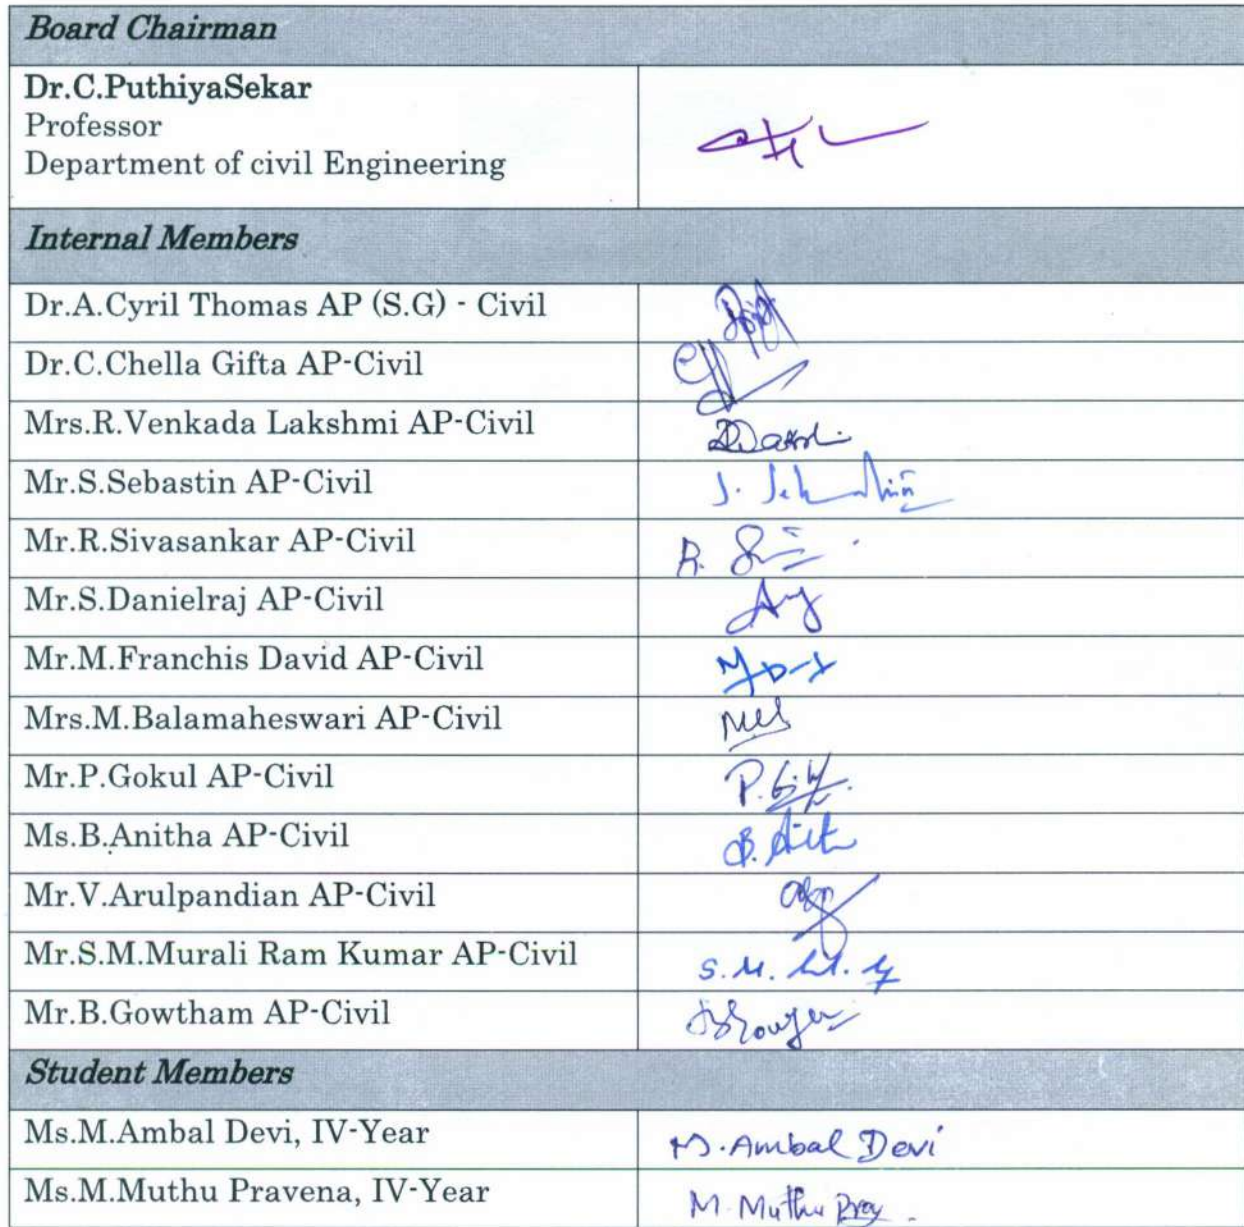 Board Chairman
Dr.C.PuthiyaSekar
Professor
Department of civil Engineering
Internal Members
Dr.A.Cyril Thomas AP (S.G) - Civil
Dr.C.Chella Gifta AP-Civil
Mrs.R.Venkada Lakshmi AP-Civil
Mr.S.Sebastin AP-Civil
Mr.R.Sivasankar AP-Civil
R.
Mr.S.Danielraj AP-Civil
Mr.M.Franchis David AP-Civil
Mrs.M.Balamaheswari AP-Civil
Mr.P.Gokul AP-Civil
P.
Ms.B.Anitha AP-Civil
B.
Mr.V.Arulpandian AP-Civil
Mr.S.M.Murali Ram Kumar AP-Civil
S.M.
Mr.B.Gowtham AP-Civil
Student Members
Ms.M.Ambal Devi, IV-Year M.Ambal Devi
Ms.M.Muthu Pravena, IV-Year M.Muthu